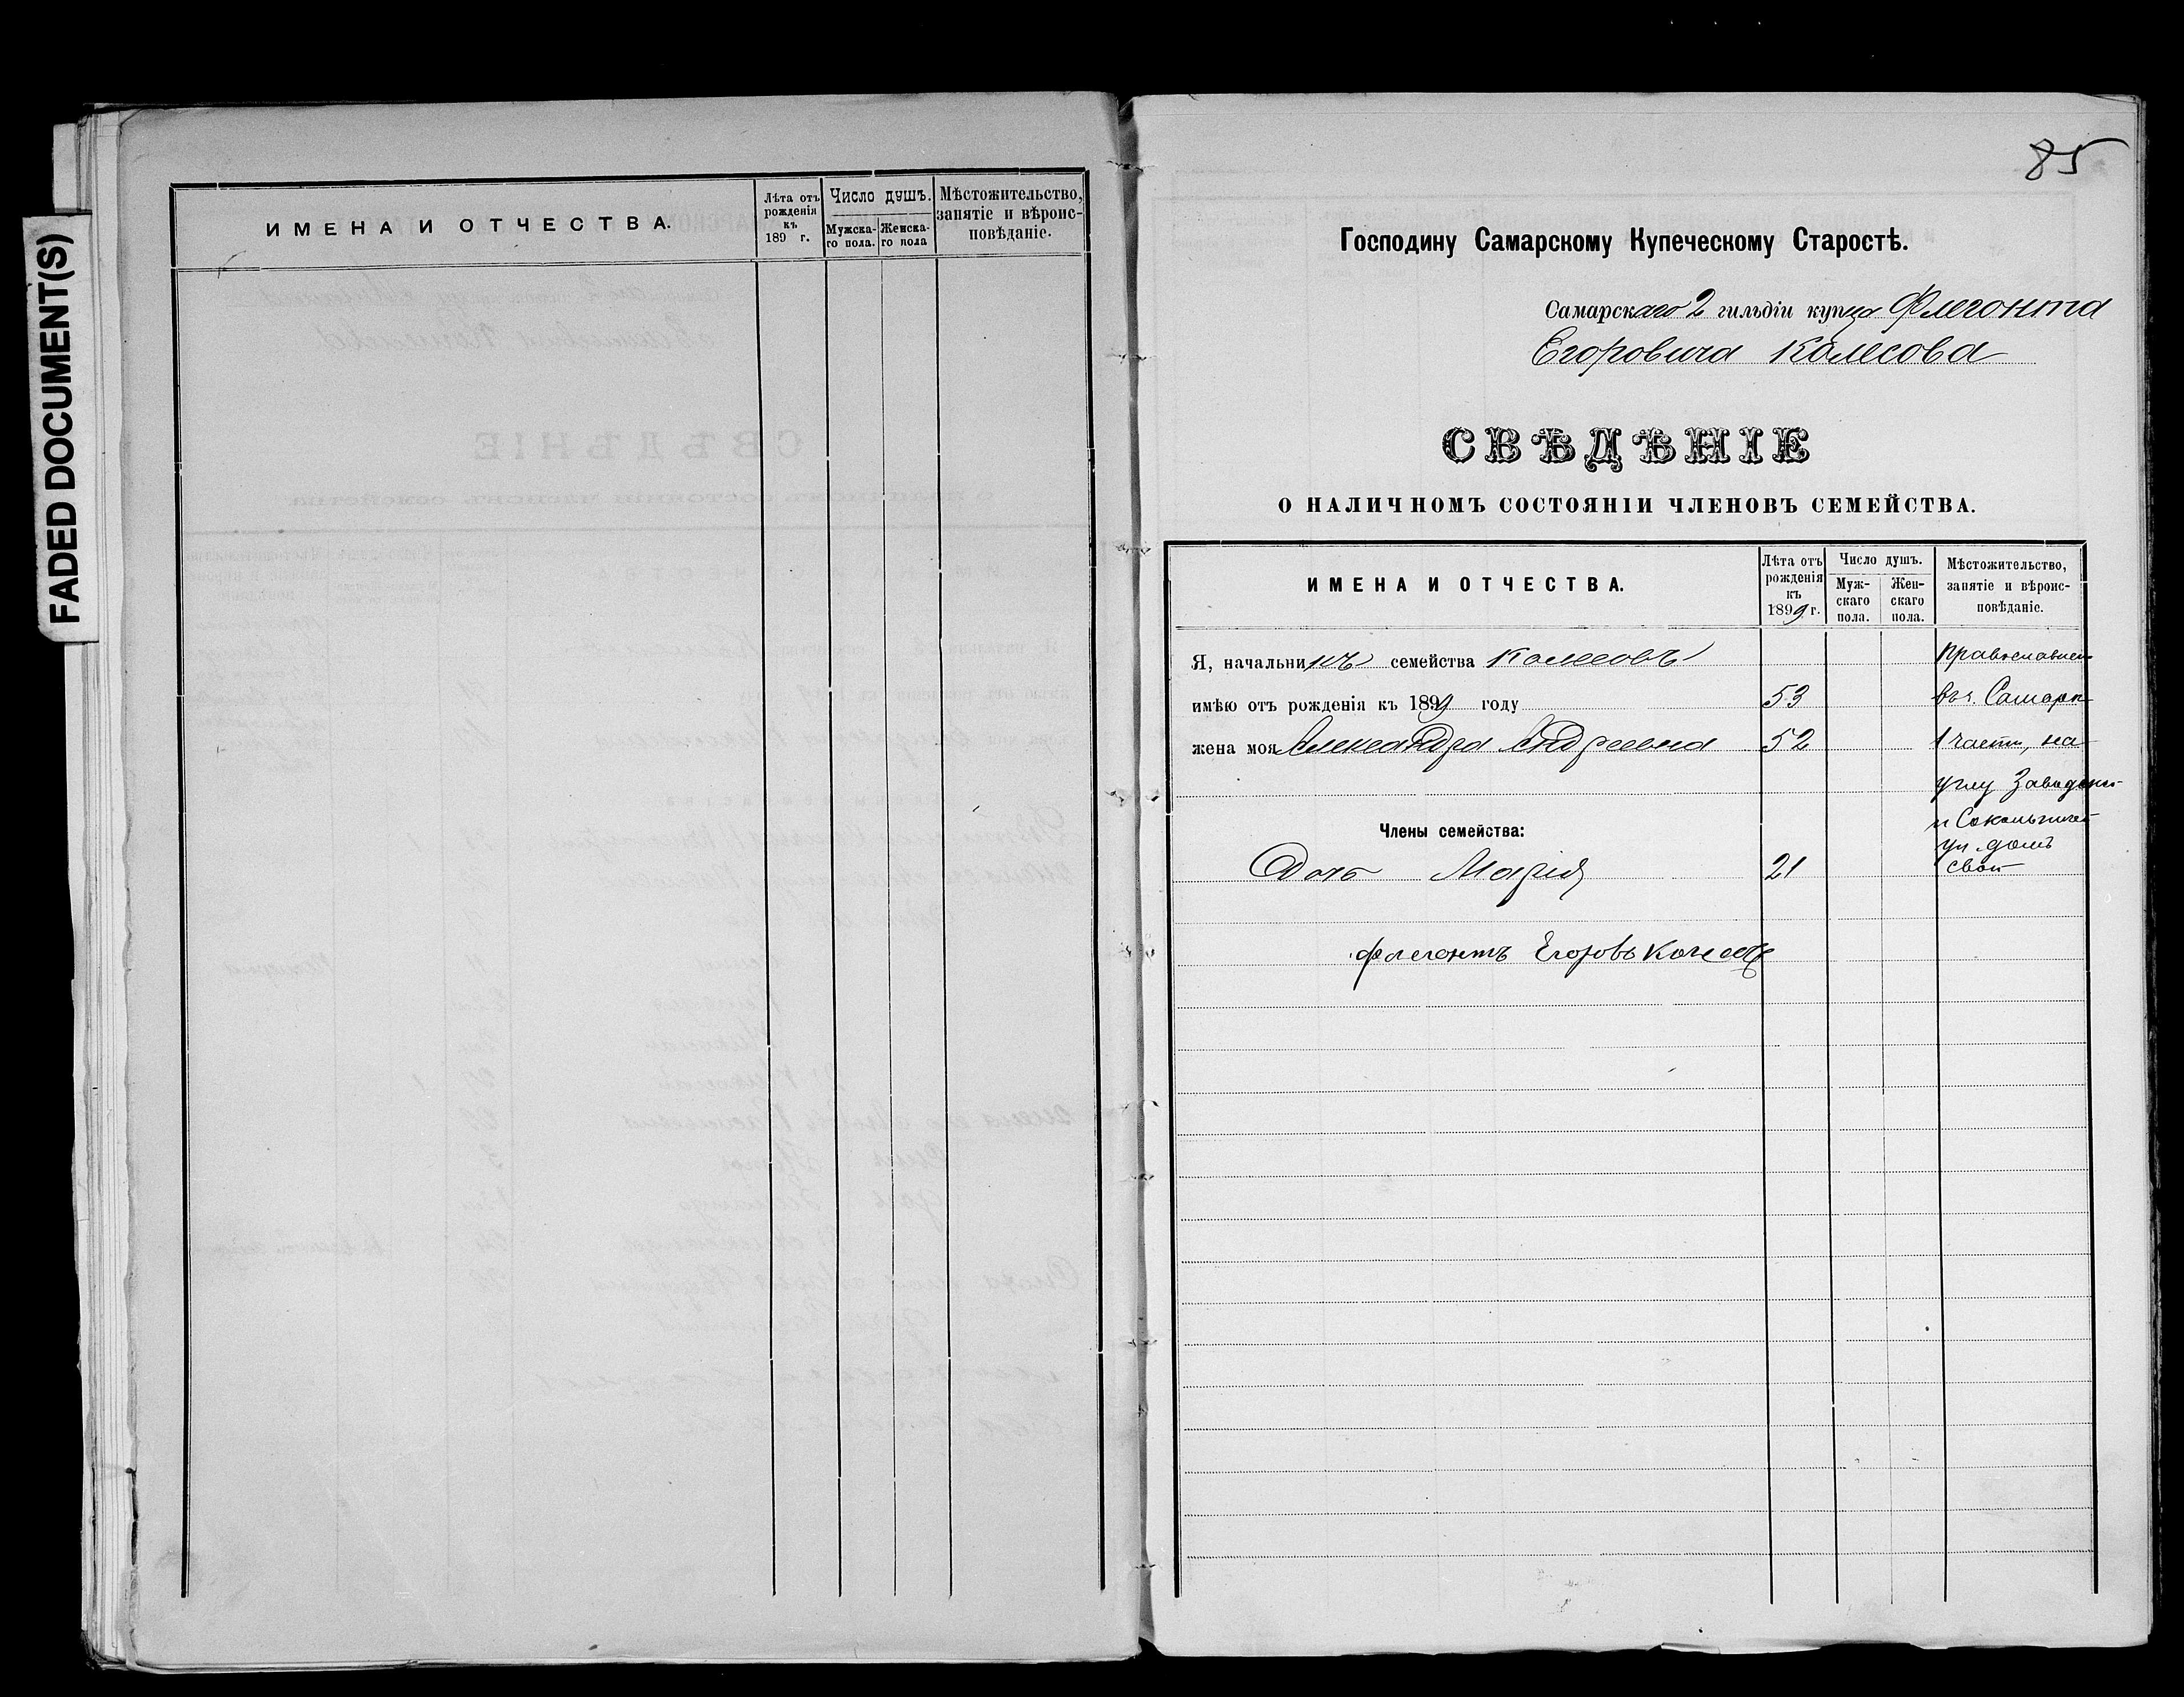 FADED DOCUMENT(S)
ИМЕНА И ОТЧЕСТВА.
Лѣта отъ рожденія къ 189 г.
Число душъ.
Мужска-го пола.
Женска-го пола
Мѣстожительство, занятіе и вѣроис-повѣданіе.
85
Господину Самарскому Купеческому Старостѣ.
Самарскаго 2 гильдіи купца Флегонта
Егоровича Колесова
СВѢДѢНІЕ
О НАЛИЧНОМЪ СОСТОЯНІИ ЧЛЕНОВЪ СЕМЕЙСТВА.
ИМЕНА И ОТЧЕСТВА.
Лѣта отъ рожденія къ 1899 г.
Число душъ.
Муж-скаго пола.
Жен-скаго пола.
Мѣстожительство, занятіе и вѣроис-повѣданіе.
Я, начальникъ семейства Колесовъ
имѣю отъ рожденія къ 1899 году 53
жена моя Александра Андреевна 52
Члены семейства:
Дочь Марія 21
Православнаго
въ г. Самарѣ
1 части, на
углу Заводской
и Сокольничей
ул. домъ
свой
Флегонтъ Егоровъ Колесовъ